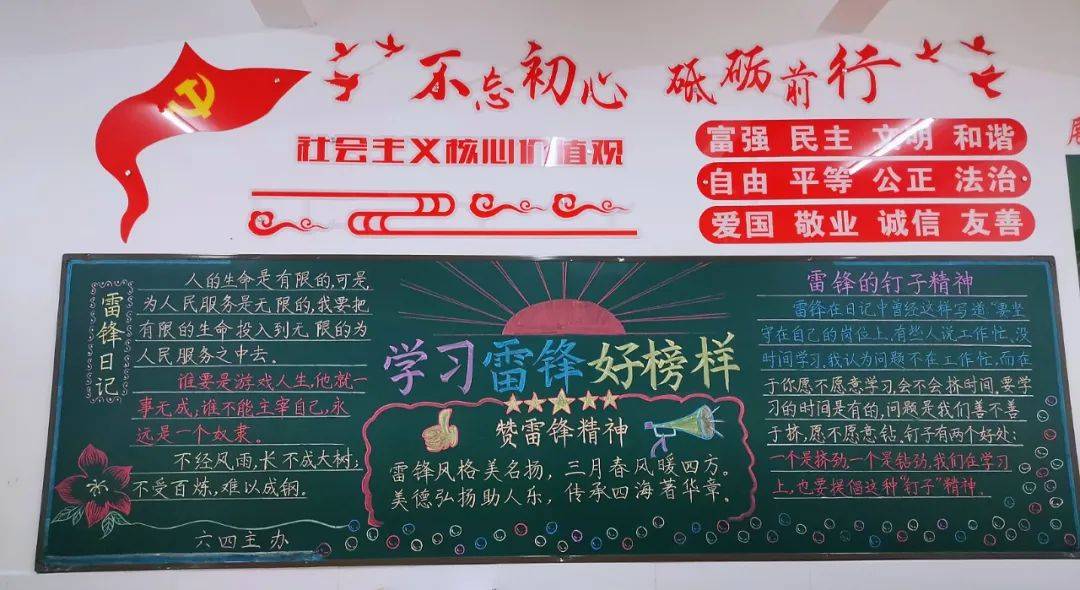 不忘初心 砥砺前行
社会主义核心价值观
富强 民主 文明 和谐
自由 平等 公正 法治
爱国 敬业 诚信 友善
雷锋日记
人的生命是有限的,可是,
为人民服务是无限的,我要把
有限的生命投入到无限的为
人民服务之中去。
谁要是游戏人生,他就一
事无成,谁不能主宰自己,永
远是一个奴隶。
不经风雨,长不成大树;
不受百炼,难以成钢。
六四主办
学习雷锋好榜样
赞雷锋精神
雷锋风格美名扬,三月春风暖四方。
美德弘扬助人乐,传承四海著华章。
雷锋的钉子精神
雷锋在日记中曾经这样写道:"要坐
守在自己的岗位上,有些人说工作忙,没
时间学习,我认为问题不在工作忙,而在
于你愿不愿意学习,会不会挤时间,要学
习的时间是有的,问题是我们善不善
于挤,愿不愿意钻,钉子有两个好处:
一个是挤劲,一个是钻劲,我们在学习
上,也要提倡这种"钉子"精神。